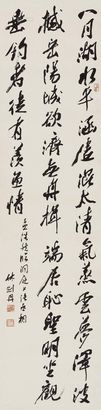 八月湖水平涵虛混太清氣蒸雲夢澤波
撼岳陽城欲濟無舟楫端居恥聖明坐觀
垂釣者徒有羨魚情
孟浩然臨洞庭上張丞相